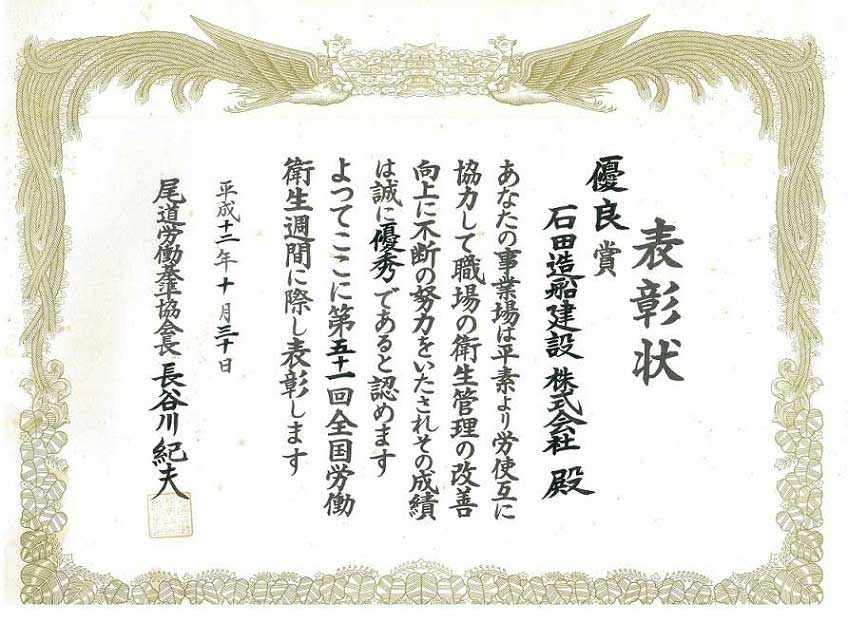 表彰状
優良賞
石田造船建設 株式会社 殿
あなたの事業場は平素より労使互に
協力して職場の衛生管理の改善
向上に不断の努力をいたされその成績
は誠に優秀であると認めます
よつてここに第五十一回全国労働
衛生週間に際し表彰します
平成十二年十月三十日
尾道労働基準協会長 長谷川紀夫